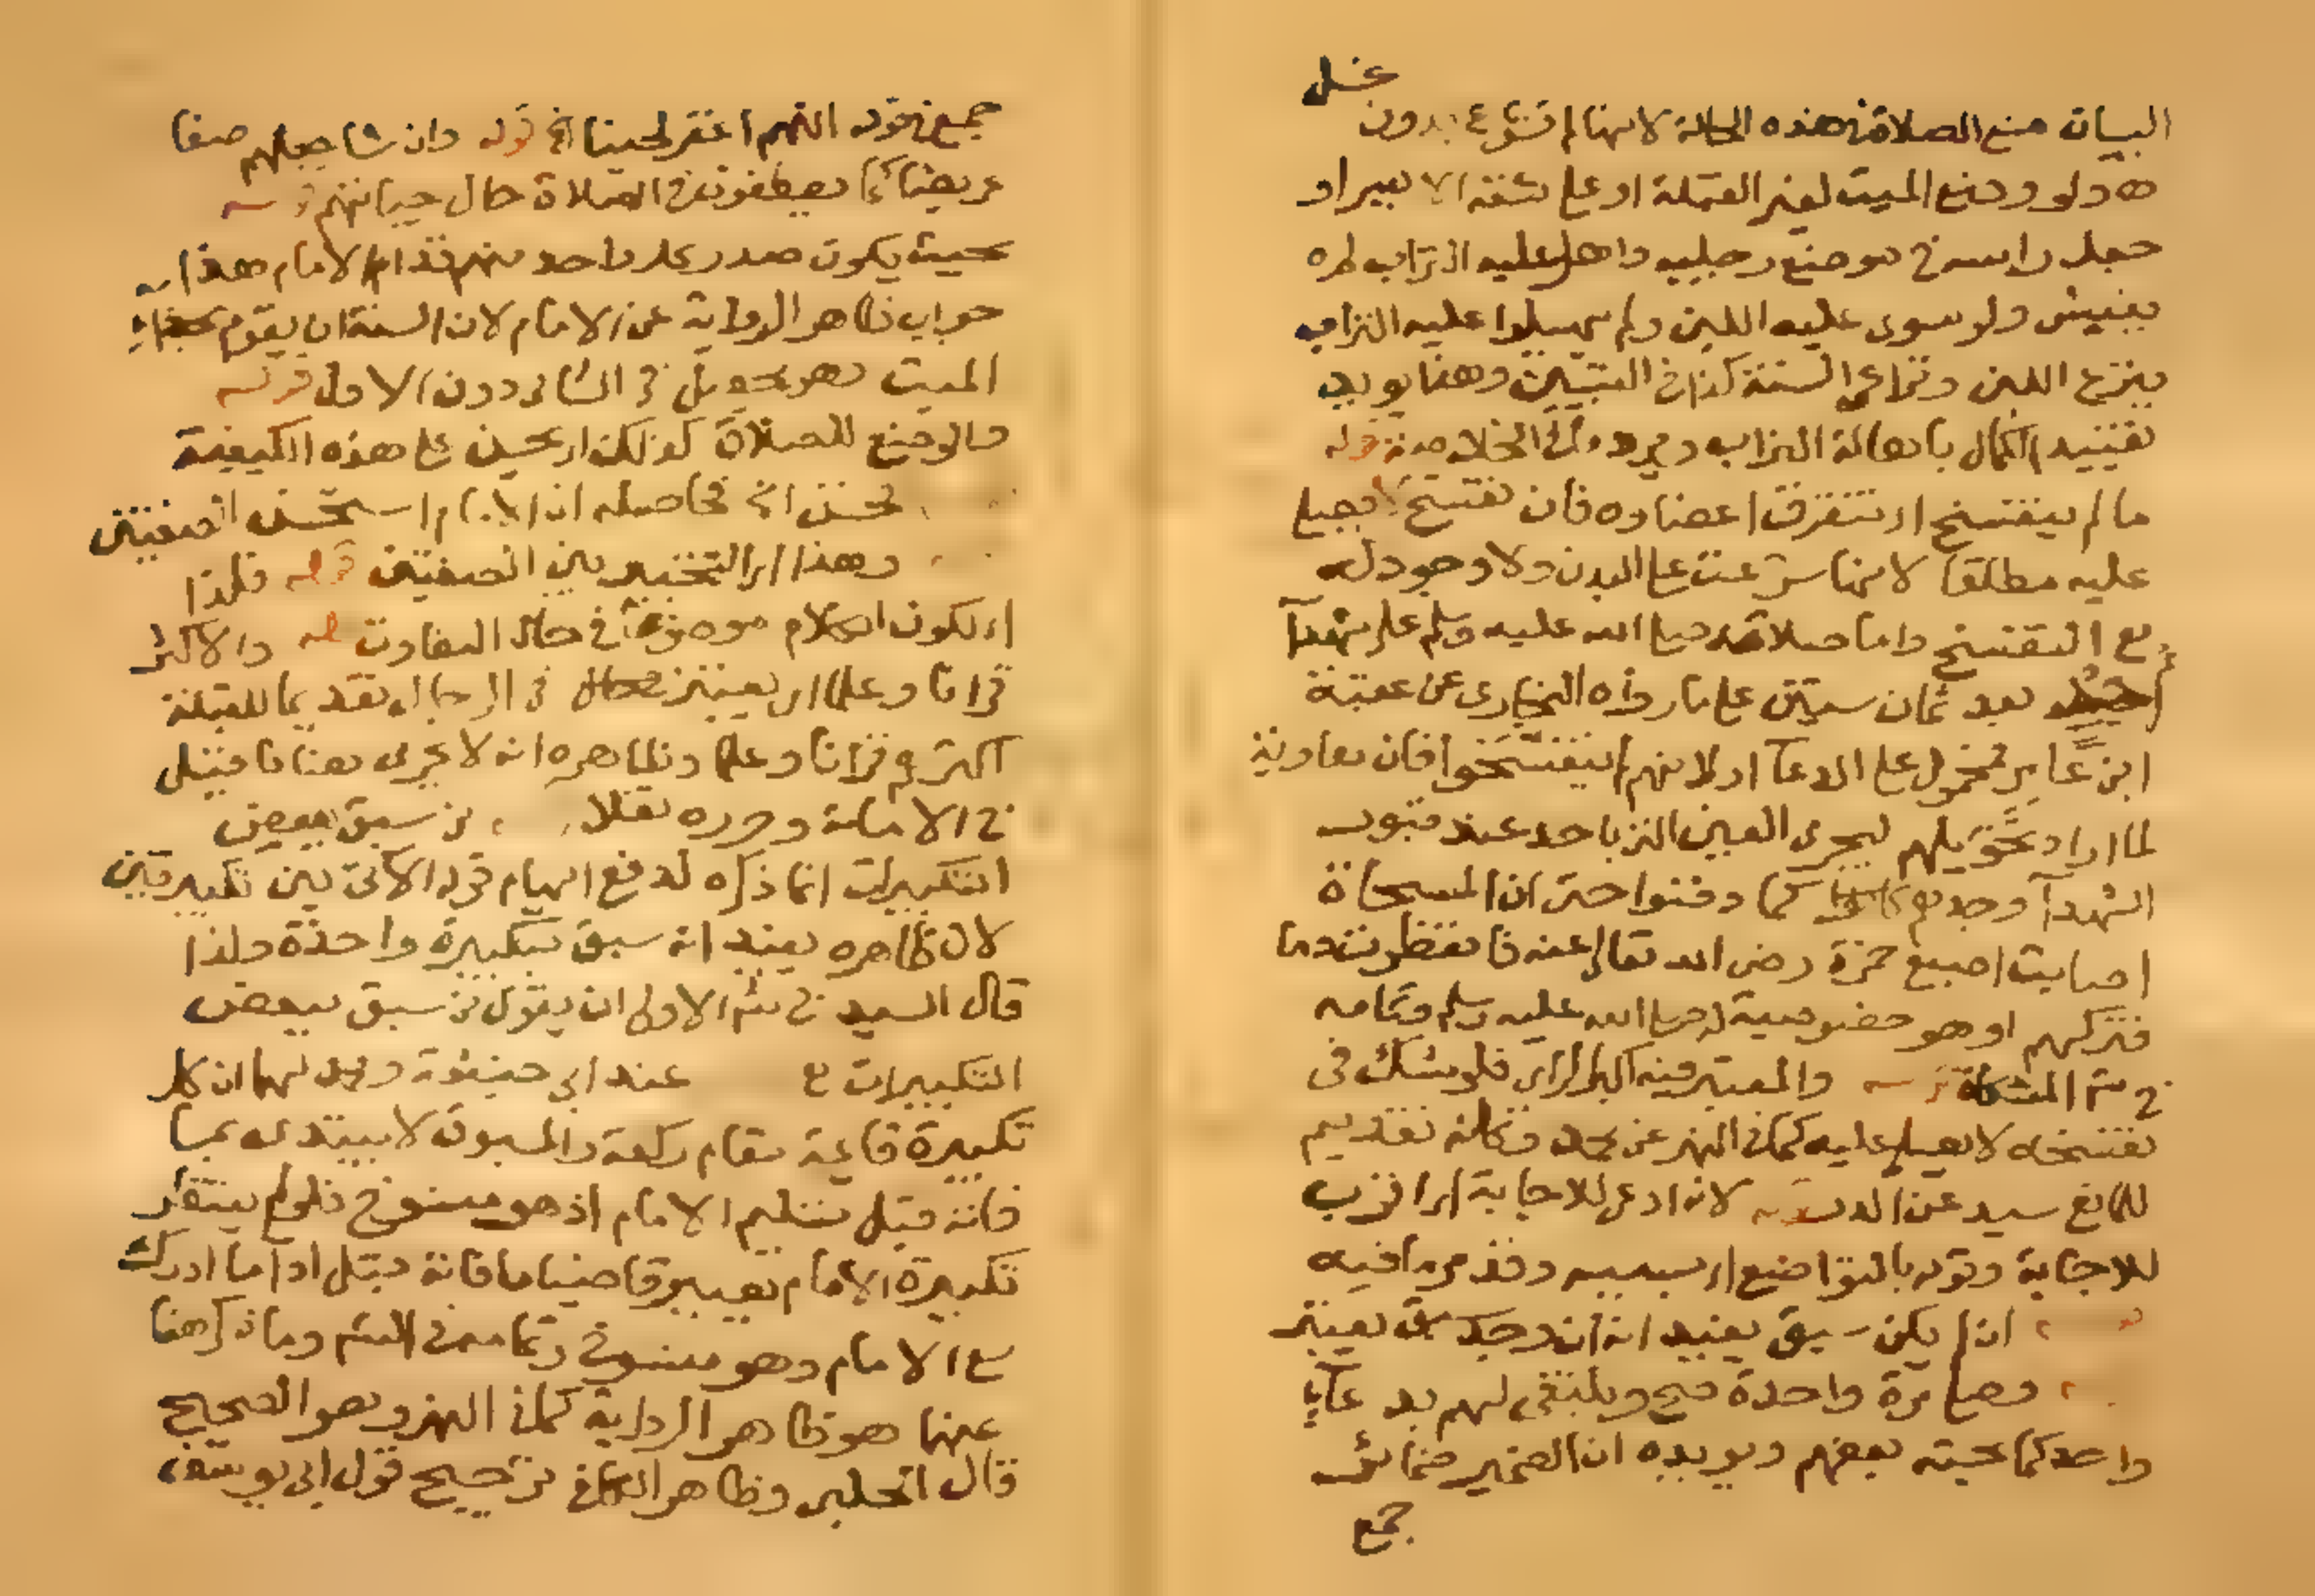 غسل
البيان منع الصلاة في هذه الحالة لانها لم تشرع بدون
ه ولو وضع الميت لغير القبلة او على شقه الايسر او
جعل راسه في موضع رجليه واهيل عليه التراب لم
ينبش ولو سوى عليه اللبن ولم يهيلوا عليه التراب
ينزع اللبن وتراعى السنة كذا في التبيين وهذا يويد
تقييد الكمال باهالة التراب الخلاصة قوله
ما لم يتفسخ اي تتفرق اعضاوه فان تفسخ لا يصلى
عليه مطلقا لانها شرعت على البدن ولا وجود له
مع التفسخ واما صلاته صلى الله عليه وسلم على شهدا
احد بعد ثمان سنين على ما رواه البخاري عن عقبة
ابن عامر فمحمول على الدعا او لانهم لم يتفسخوا فان معاوية
لما اراد تحويلهم ليجري العين التي باحد عند قبور
الشهدآ وجدهم كما دفنوا حتى ان المسحاة
اصابت اصبع حمزة رضي الله تعالى عنه فانفطرت دما
فتركهم او هو خصوصية له صلى الله عليه وسلم وتمامه
في شر المشكاة قوله والمعتبر فيه اكبر الراي فلو شك في
تفسخه لا يصلى عليه كما في النهر عن محمد وكانه تقديم
للمانع سيد عن الدر قوله لانه ادعى للاجابة اي اقرب
للاجابة وقوله بالتواضع اي بسببه وقد مر ما فيه
ان لم يكن سبق يفيد انه ان وجد سبق يعتبر
وصلى مرة واحدة صح ويكتفى لهم بدعآء
واحد كما بحثه بعضهم ويويده ان الضمير ضمائر
جمع
جمع في قوله اللهم اغفر لحينا الخ قوله وان شا جعلهم صفا
عريضا كما يصطفون في الصلاة حال حياتهم قوله
بحيث يكون صدر كل واحد منهم قدام الامام هذا
جواب ظاهر الرواية عن الامام لان السنة ان يقوم بحذاء
الميت وهو يحصل في الثاني دون الاول قوله
والوضع للصلاة كذلك اي بحسن على هذه الكيفية
فحسن الخ فحاصله ان الامام استحسن الصفتين
وهذا اي التخيير بين الصفتين قوله فلذا
اي لكون الكلام موضوعا في حال التفاوت قوله والاكثر
قرانا وعلما اي يعتبر في الرجال تقديما للقبلة
اكثرهم قرانا وعلما وظاهره انه لا يجري هنا ما قيل
في الامامة وحرره نقلا من سبق ببعض
التكبيرات انما ذكره لدفع ايهام قوله الاتي بين تكبيرتين
لان ظاهره يفيد انه سبق بتكبيرة واحدة ولذا
قال السيد في شر الاولى ان يقول من سبق ببعض
التكبيرات ع عند ابي حنيفة ومحمد لهما ان كل
تكبيرة قائمة مقام ركعة والمسبوق لا يبتدى بما
فاته قبل تسليم الامام اذ هو منسوخ فلو لم ينتظر
تكبيرة الامام يصير قاضيا ما فاته قبل ادا ما ادرك
مع الامام وهو منسوخ وتمامه في الشر وما ذكر هنا
عنهما هو ظاهر الرواية كما في النهر وهو الصحيح
قال الحلبي وظاهر ترجيح قول ابي يوسف